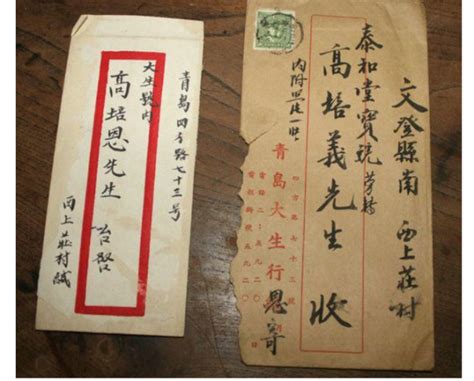 青島四方路七十三号
大生號内
高培恩先生 台啓
西上莊村緘
文登縣南 西上莊村
泰和堂寶號 劳转
高培義先生 收
内附
青島大生行
恩寄